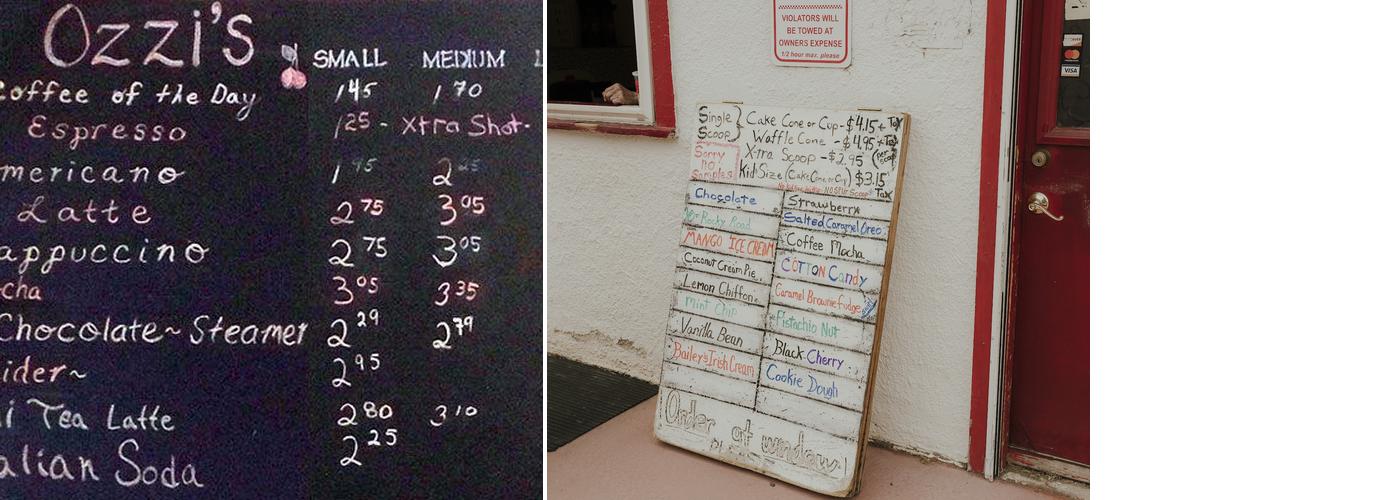 Ozzi's
SMALL MEDIUM
Coffee of the Day 1 45 1 70
Espresso 1 25 - Xtra Shot-
mericano 1 95 2 25
Latte 2 75 3 05
appuccino 2 75 3 05
cha 3 05 3 35
Chocolate~ Steamer 2 29 2 79
ider~ 2 95
i Tea Latte 2 80 3 10
alian Soda 2 25
VIOLATORS WILL
BE TOWED AT
OWNERS EXPENSE
1/2 hour max. please
VISA
Single Scoop } Cake Cone or Cup - $4.15 + Tax
Waffle Cone - $4.95 + Tax
Xtra Scoop - $2.95 (per scoop)
Sorry
no
Samples
Kid Size (Cake Cone or Cup) $3.15
Tax
Chocolate
Rocky Road
MANGO ICE CREAM
Coconut Cream Pie
Lemon Chiffon
Mint Chip
Vanilla Bean
Bailey's Irish Cream
Strawberry
Salted Caramel Oreo
Coffee Mocha
COTTON Candy
Caramel Brownie Fudge
Pistachio Nut
Black Cherry
Cookie Dough
Order at window!